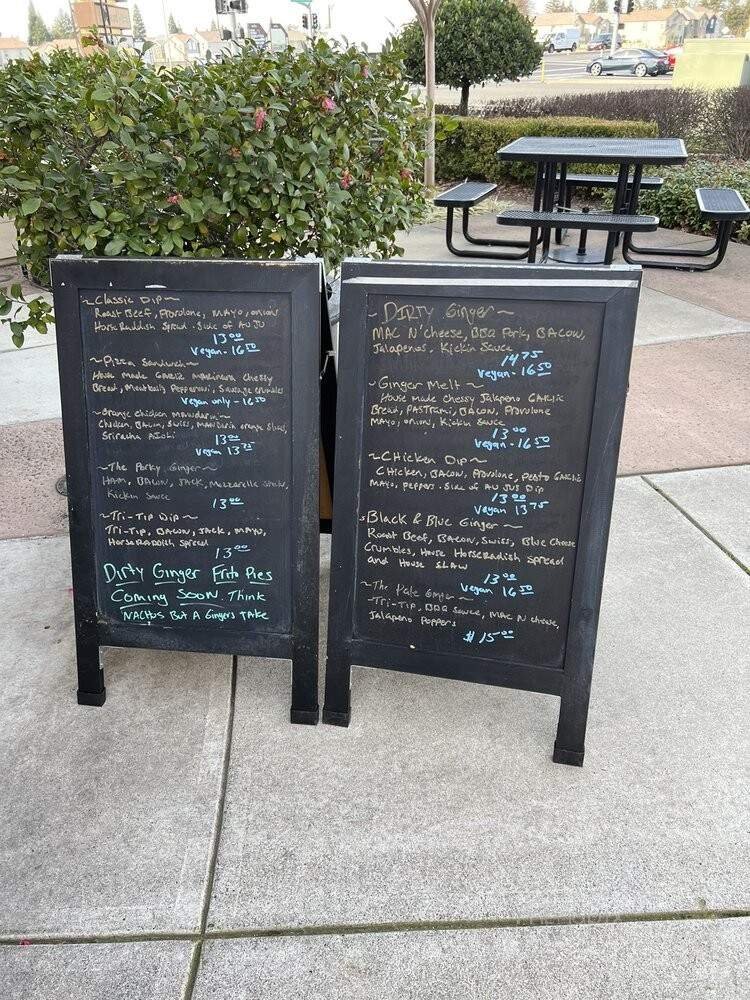 ~Classic Dip~
Roast Beef, Provolone, MAYO, onions
Horse Raddish Spread. Side of AU JU
13.00
Vegan-16.50
~Pizza Sandwich~
House made Garlic marinara chessy
Bread, Meatballs Pepperoni, Sausage crumbles
Vegan only-16.50
~Orange Chicken mandarin~
Chicken, Bacon, Swiss, mandarin orange Slaw,
Sriracha Aioli
13.00
Vegan 13.75
~The Porky Ginger~
HAM, BACON, JACK, Mozzarella Sticks,
Kickin Sauce
13.00
~Tri-Tip Dip~
Tri-Tip, BACON, JACK, MAYO,
HorseRaddish Spread
13.00
Dirty Ginger Frito Pies
Coming Soon. Think
NACHOS But A Gingers TAKE
~DIRTY Ginger~
MAC N' cheese, BBQ Pork, BACON,
Jalapenos, Kickin Sauce
14.75
Vegan-16.50
~Ginger Melt~
House made chessy Jalapeno GARLIC
Bread, PASTRami, BACON, Provolone
MAYO, onions, Kickin Sauce
13.00
Vegan-16.50
~CHicken Dip~
CHicken, BACON, Provolone, Pesto GARLIC
MAYO, peppers. Side of AU JUS Dip
13.00
Vegan 13.75
~Black & Blue Ginger~
Roast Beef, Bacon, Swiss, Blue Cheese
Crumbles, House HorseRadish Spread
and House SLAW
13.00
Vegan 16.50
~The Pale Ginger~
Tri-Tip, BBQ Sauce, MAC N cheese,
Jalapeno Poppers
$15.00